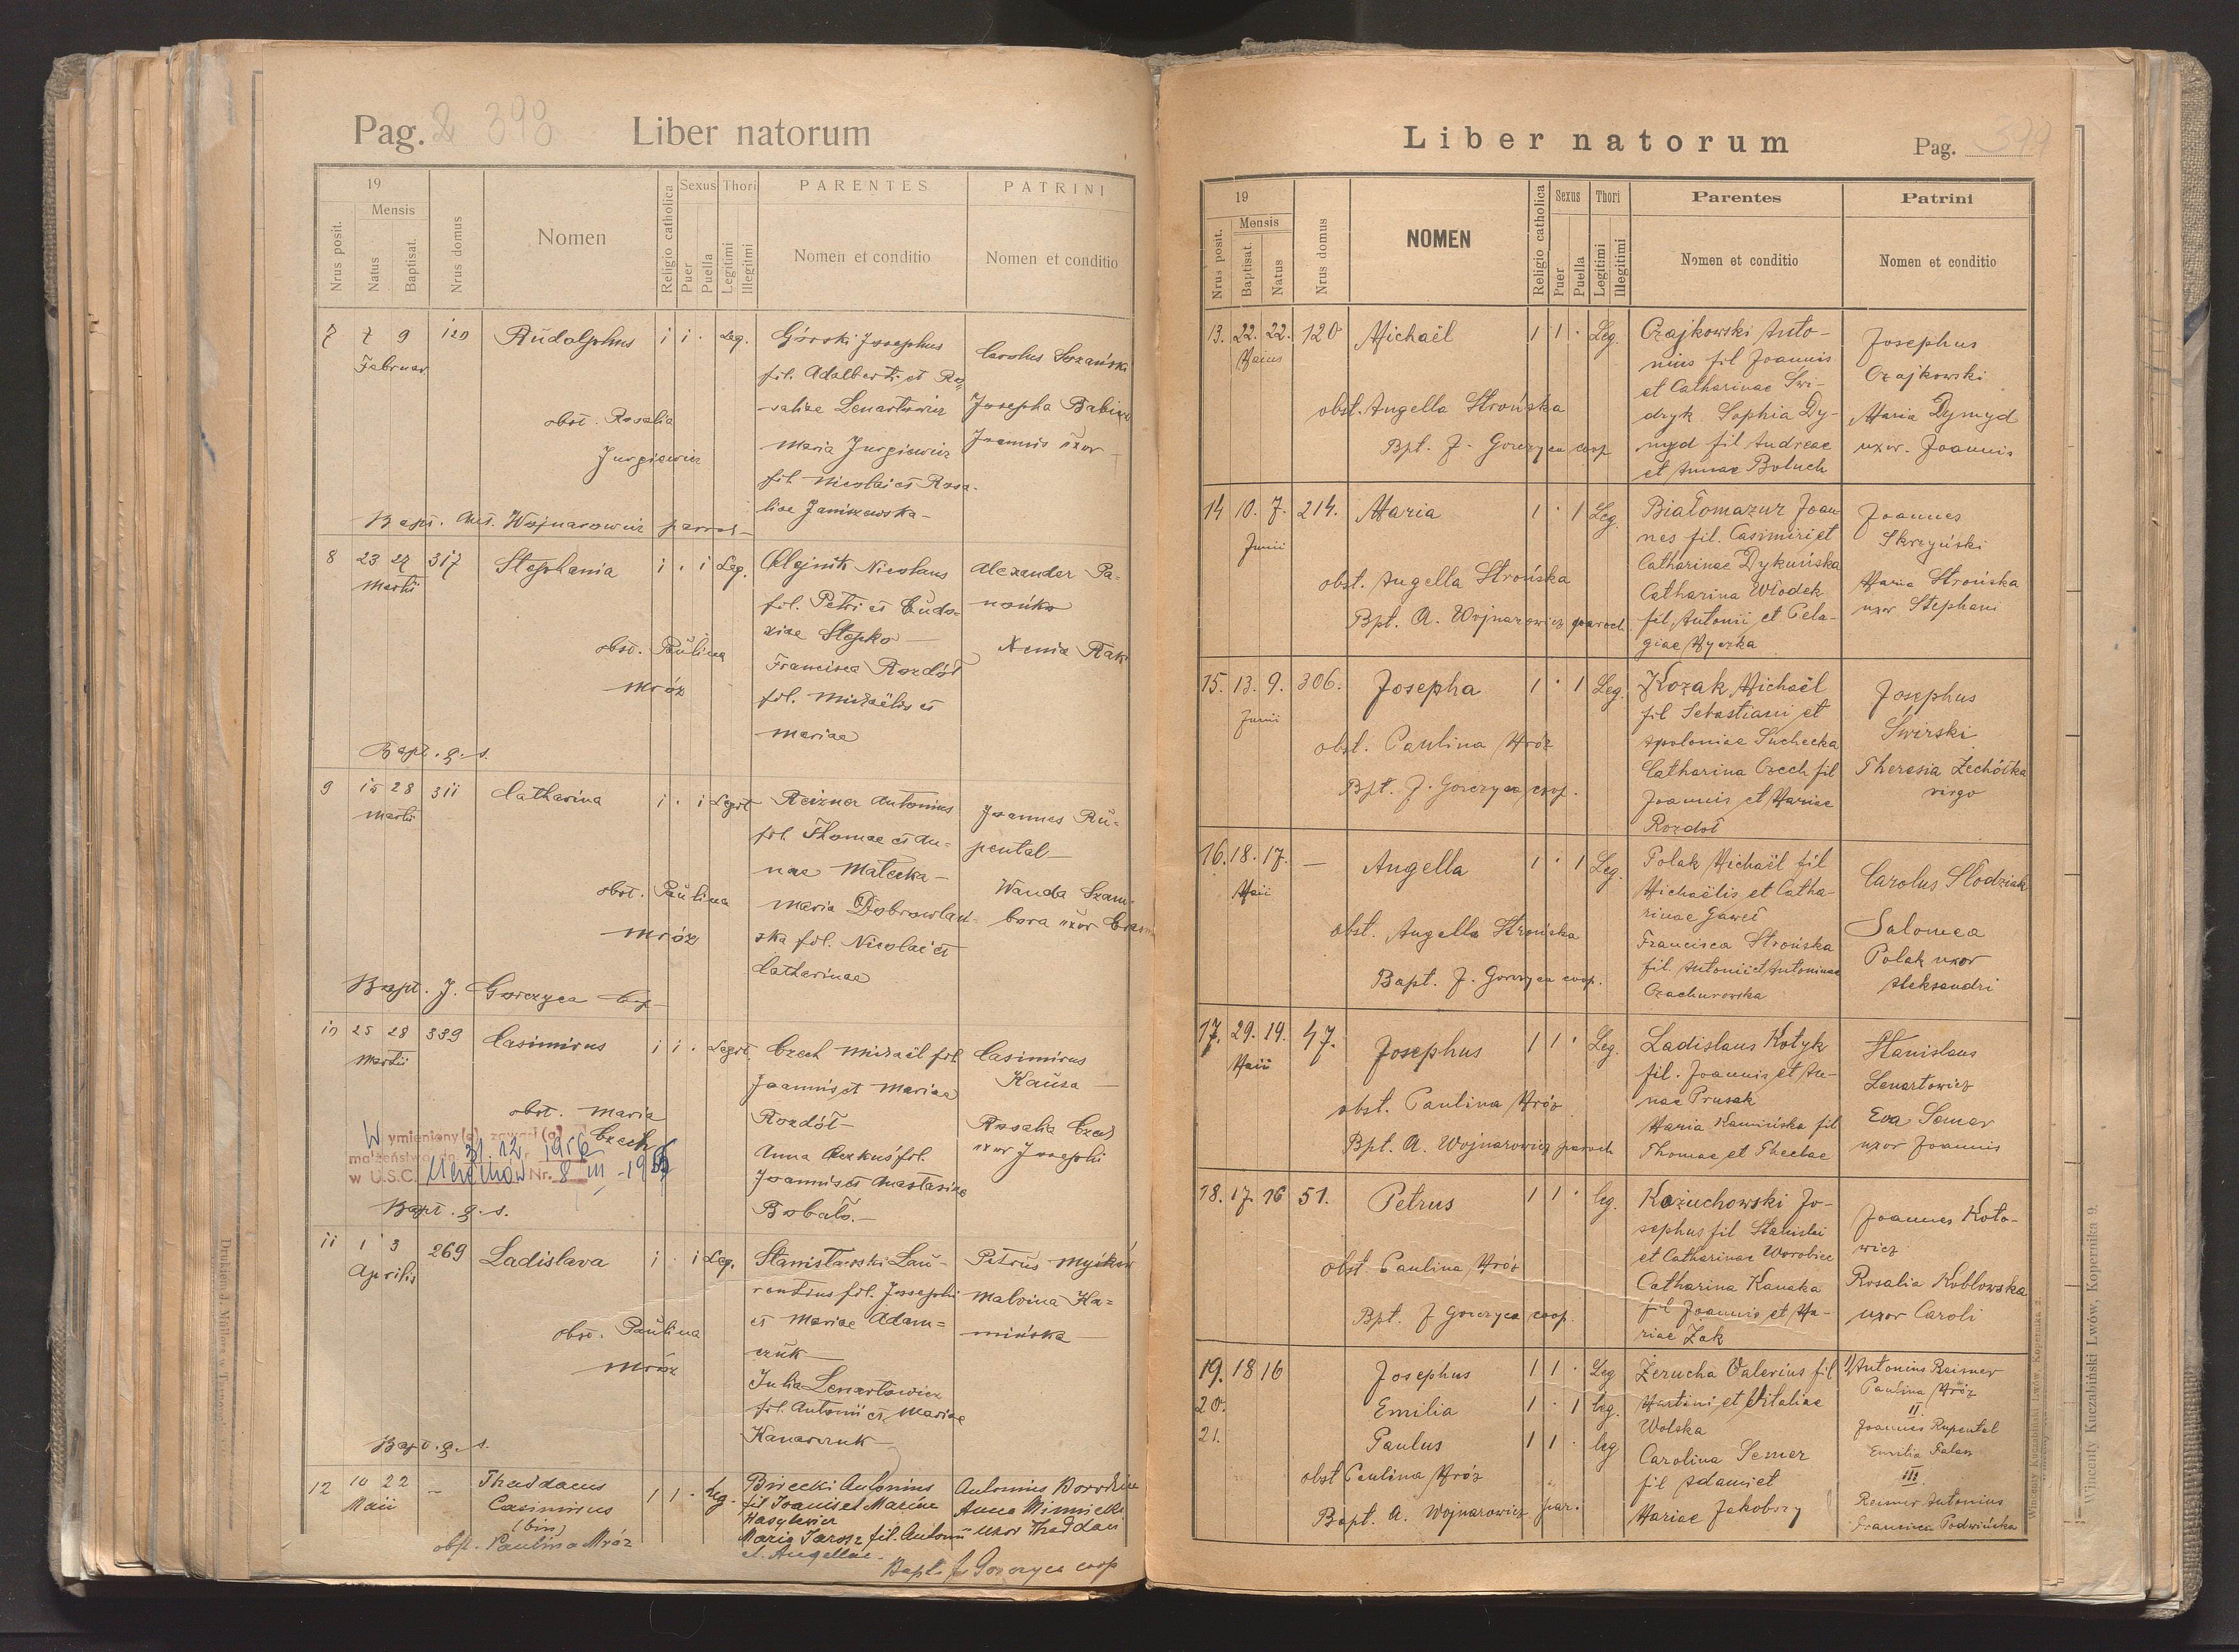 Pag. 2 398 Liber natorum
19
Mensis
Nrus posit.
Natus
Baptisat.
Nrus domus
Nomen
Religio catholica
Sexus
Puer
Puella
Thori
Legitimi
Illegitimi
PARENTES
Nomen et conditio
PATRINI
Nomen et conditio
7 7 9 120 Rudolphus i i · Leg. Górski Josephus
Februar
fil. Adalberti et Ro-
saliae Lenartowicz
Maria Jurgiewicz
fil. Nicolai et Rosa-
liae Janiszewska
Carolus
Josepha
Joannis uxor
obst. Rosalia
Jurgiewicz
Bapt. Ant. Wojnarowicz paroch
8 23 27 317 Stephania i · i Leg. Olejnik Nicolaus
Martii
fil. Petri et Eudo-
xiae Stopko
Francisca Rozdół
fil. Michaëlis et
Mariae
Alexander Pa-
Xenia Rak
obst. Paulina
Mróz
Bapt. q. s.
9 15 28 311 Catharina i · i Legit Reizner Antonius
Martii
fil. Thomae et An-
nae Matecka
Maria Dobrowlań-
ska fil. Nicolai et
Catharinae
Joannes Ru-
pental
Wanda Szam-
bora uxor
obst. Paulina
Mróz
Bapt. J. Gorczyca Cop
10 25 28 339 Casimirus i i · Legit. Czech Michaël fil.
Martii
Joannis et Mariae
Rozdół
Anna fil.
Joannis et Anastasiae
Casimirus
Rosalia Czech
uxor Josephi
obst. Maria
Czech
Wymieniony(a) zawarł(a)
małżeństwo dn. 31.12.1956 r
w U.S.C. Nr. 8 III - 195
Bapt. q. s.
11 1 3 269 Ladislava i · i Leg. Stanisławski Lau-
Aprilis
rentius fil. Josephi
et Mariae Adam-
czuk
Julia Lenartowicz
fil. Antonii et Mariae
Kanarczuk
Petrus
Malvina Ka-
mińska
obst. Paulina
Mróz
Bapt. q. s.
12 10 22 – Thaddaeus 1 1 · Leg. Antonius
Maii
Casimirus
(bin)
fil Joannis et Mariae
Wasylewicz
Maria Jarosz fil. Antonii
et Angellae
Antonius
Anna
uxor Thaddaei
obst. Paulina Mróz
Bapt. J. Gorczyca coop
Liber natorum Pag. 399
19
Mensis
Nrus posit.
Baptisat.
Natus
Nrus domus
NOMEN
Religio catholica
Sexus
Puer
Puella
Thori
Legitimi
Illegitimi
Parentes
Nomen et conditio
Patrini
Nomen et conditio
13. 22. 22. 120 Michaël 1 1 · Leg. Czajkowski Anto-
Maius
nius fil Joannis
et Catharinae Świ-
dryk Sophia Dy-
myd fil Andreae
et Annae Boluch
Josephus
Czajkowski
Maria Dymyd
uxor. Joannis
obst. Angella Strońska
Bpt. J. Gorczyca coop
14 10. 7. 214. Maria 1 · 1 Leg. Białomazur Joan-
Junii
nes fil. Casimiri et
Catharinae Dykuńska
Catharina Włodek
fil, Antonii et Pela-
giae Hyczka
Joannes
Skrzyński
Maria Strońska
uxor Stephani
obst. Angella Strońska
Bpt. A. Wojnarowicz paroch
15. 13. 9. 306. Josepha 1 · 1 Leg. Kozak Michaël
Junii
fil Sebastiani et
Apoloniae Suchecka
Catharina Czech fil
Joannis et Mariae
Rozdoł
Josephus
Świrski
Theresia Zechótka
virgo
obst. Paulina Mróz
Bpt. J. Gorczyca coop.
16. 18. 17. – Angella 1 · 1 Leg. Polak Michaël fil
Maii
Michaëlis et Catha-
rinae Gaweł
Francisca Strońska
fil. Antonii et Antoninae
Czachurowska
Carolus Słodziak
Salomea
Polak uxor
Aleksandri
obst. Angella Strońska
Bapt. J. Gorczyca coop.
17. 29. 19. 47. Josephus 1 1 · Leg. Ladislaus Kotyk
Maii
fil. Joannis et An-
nae Prusak
Maria Kamińska fil
Thomae et Theclae
Stanislaus
Lenartowicz
Eva Semar
uxor Joannis
obst. Paulina Mróz
Bpt. A. Wojnarowicz paroch
18. 17. 16 51. Petrus 1 1 · leg. Kożuchowski Jo-
sephus fil Stanislai
et Catharinae Worobiec
Catharina Kanaka
fil Joannis et Ma-
riae Żak
Joannes Koto-
wicz
Rosalia Koblowska
uxor Caroli
obst. Paulina Mróz
Bpt. J Gorczyca coop.
19. 18 16 Josephus 1 1 · Leg Żerucha Valerius fil
20. Emilia 1 · 1 leg. Martini et Vitaliae
Wolska
21. Paulus 1 1 · leg Carolina Semer
fil Adami et
Mariae Jakobszy
1) Antonius Reisner
Paulina Mróz
II
Joannes Rupental
Emilia Falas
III.
Reisner Antonius
Francisca Podwińska
obst Paulina Mróz
Bapt. A. Wojnarowicz par.
Wincenty Kuczabiński Lwów, Kopernika 2.
Wincenty Kuczabiński Lwów, Kopernika 9.